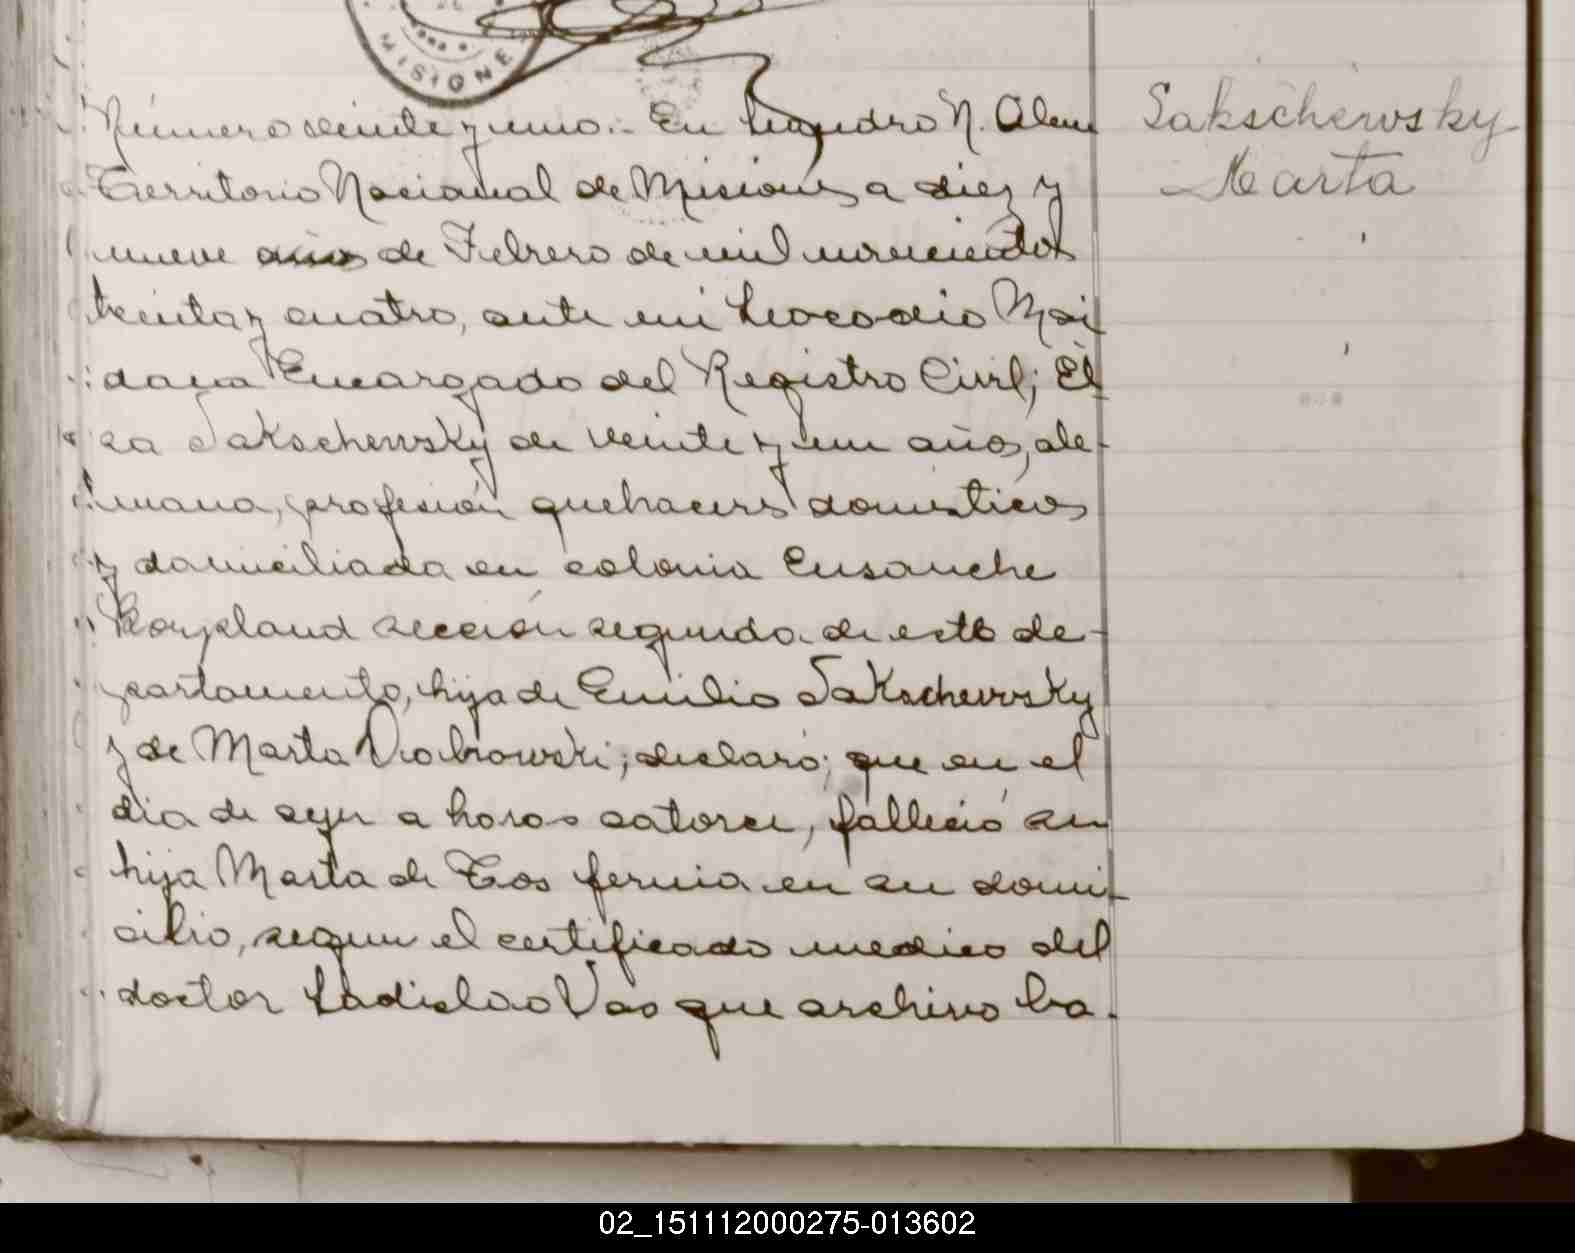 MISIONE
Número veinte y uno.- En Leandro N. Alem
Sakschewsky
Marta
Territorio Nacional de Misiones a diez y
nueve de Febrero de mil novecientos
treinta y cuatro, ante mi Leocodio Mai
dana Encargado del Registro Civil; El-
sa Sakschewsky de veinte y un años, ale-
mana, profesión quehaceres domesticos
y domiciliada en colonia Ensanche
sección segunda de este de-
partamento, hija de Emilio Sakschewsky
y de Marta Drobrowski; declaró; que en el
dia de ayer a horas catorce, falleció su
hija Marta de Tos ferina en su domi-
cilio, segun el certificado medico del
doctor Ladislao Vas que archivo ba.
02_151112000275-013602